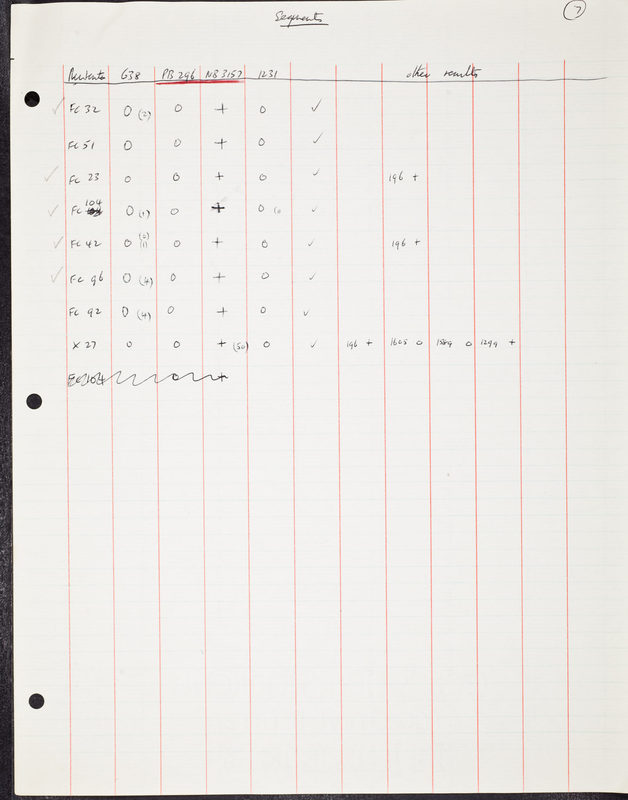 Segments
7
G38 PB 296 NB 3157 1231 other results
✓ FC 32 0 (2) 0 + 0 ✓
FC 51 0 0 + 0 ✓
✓ FC 23 0 0 + 0 ✓ 196 +
✓ FC 104 0 (1) 0 + 0 ✓
✓ FC 42 0 0 + 0 ✓ 196 +
✓ FC 96 0 (4) 0 + 0 ✓
FC 92 0 (4) 0 + 0 ✓
X 27 0 0 + (50) 0 ✓ 196 + 1605 0 1589 0 1299 +
FC 104 0 +